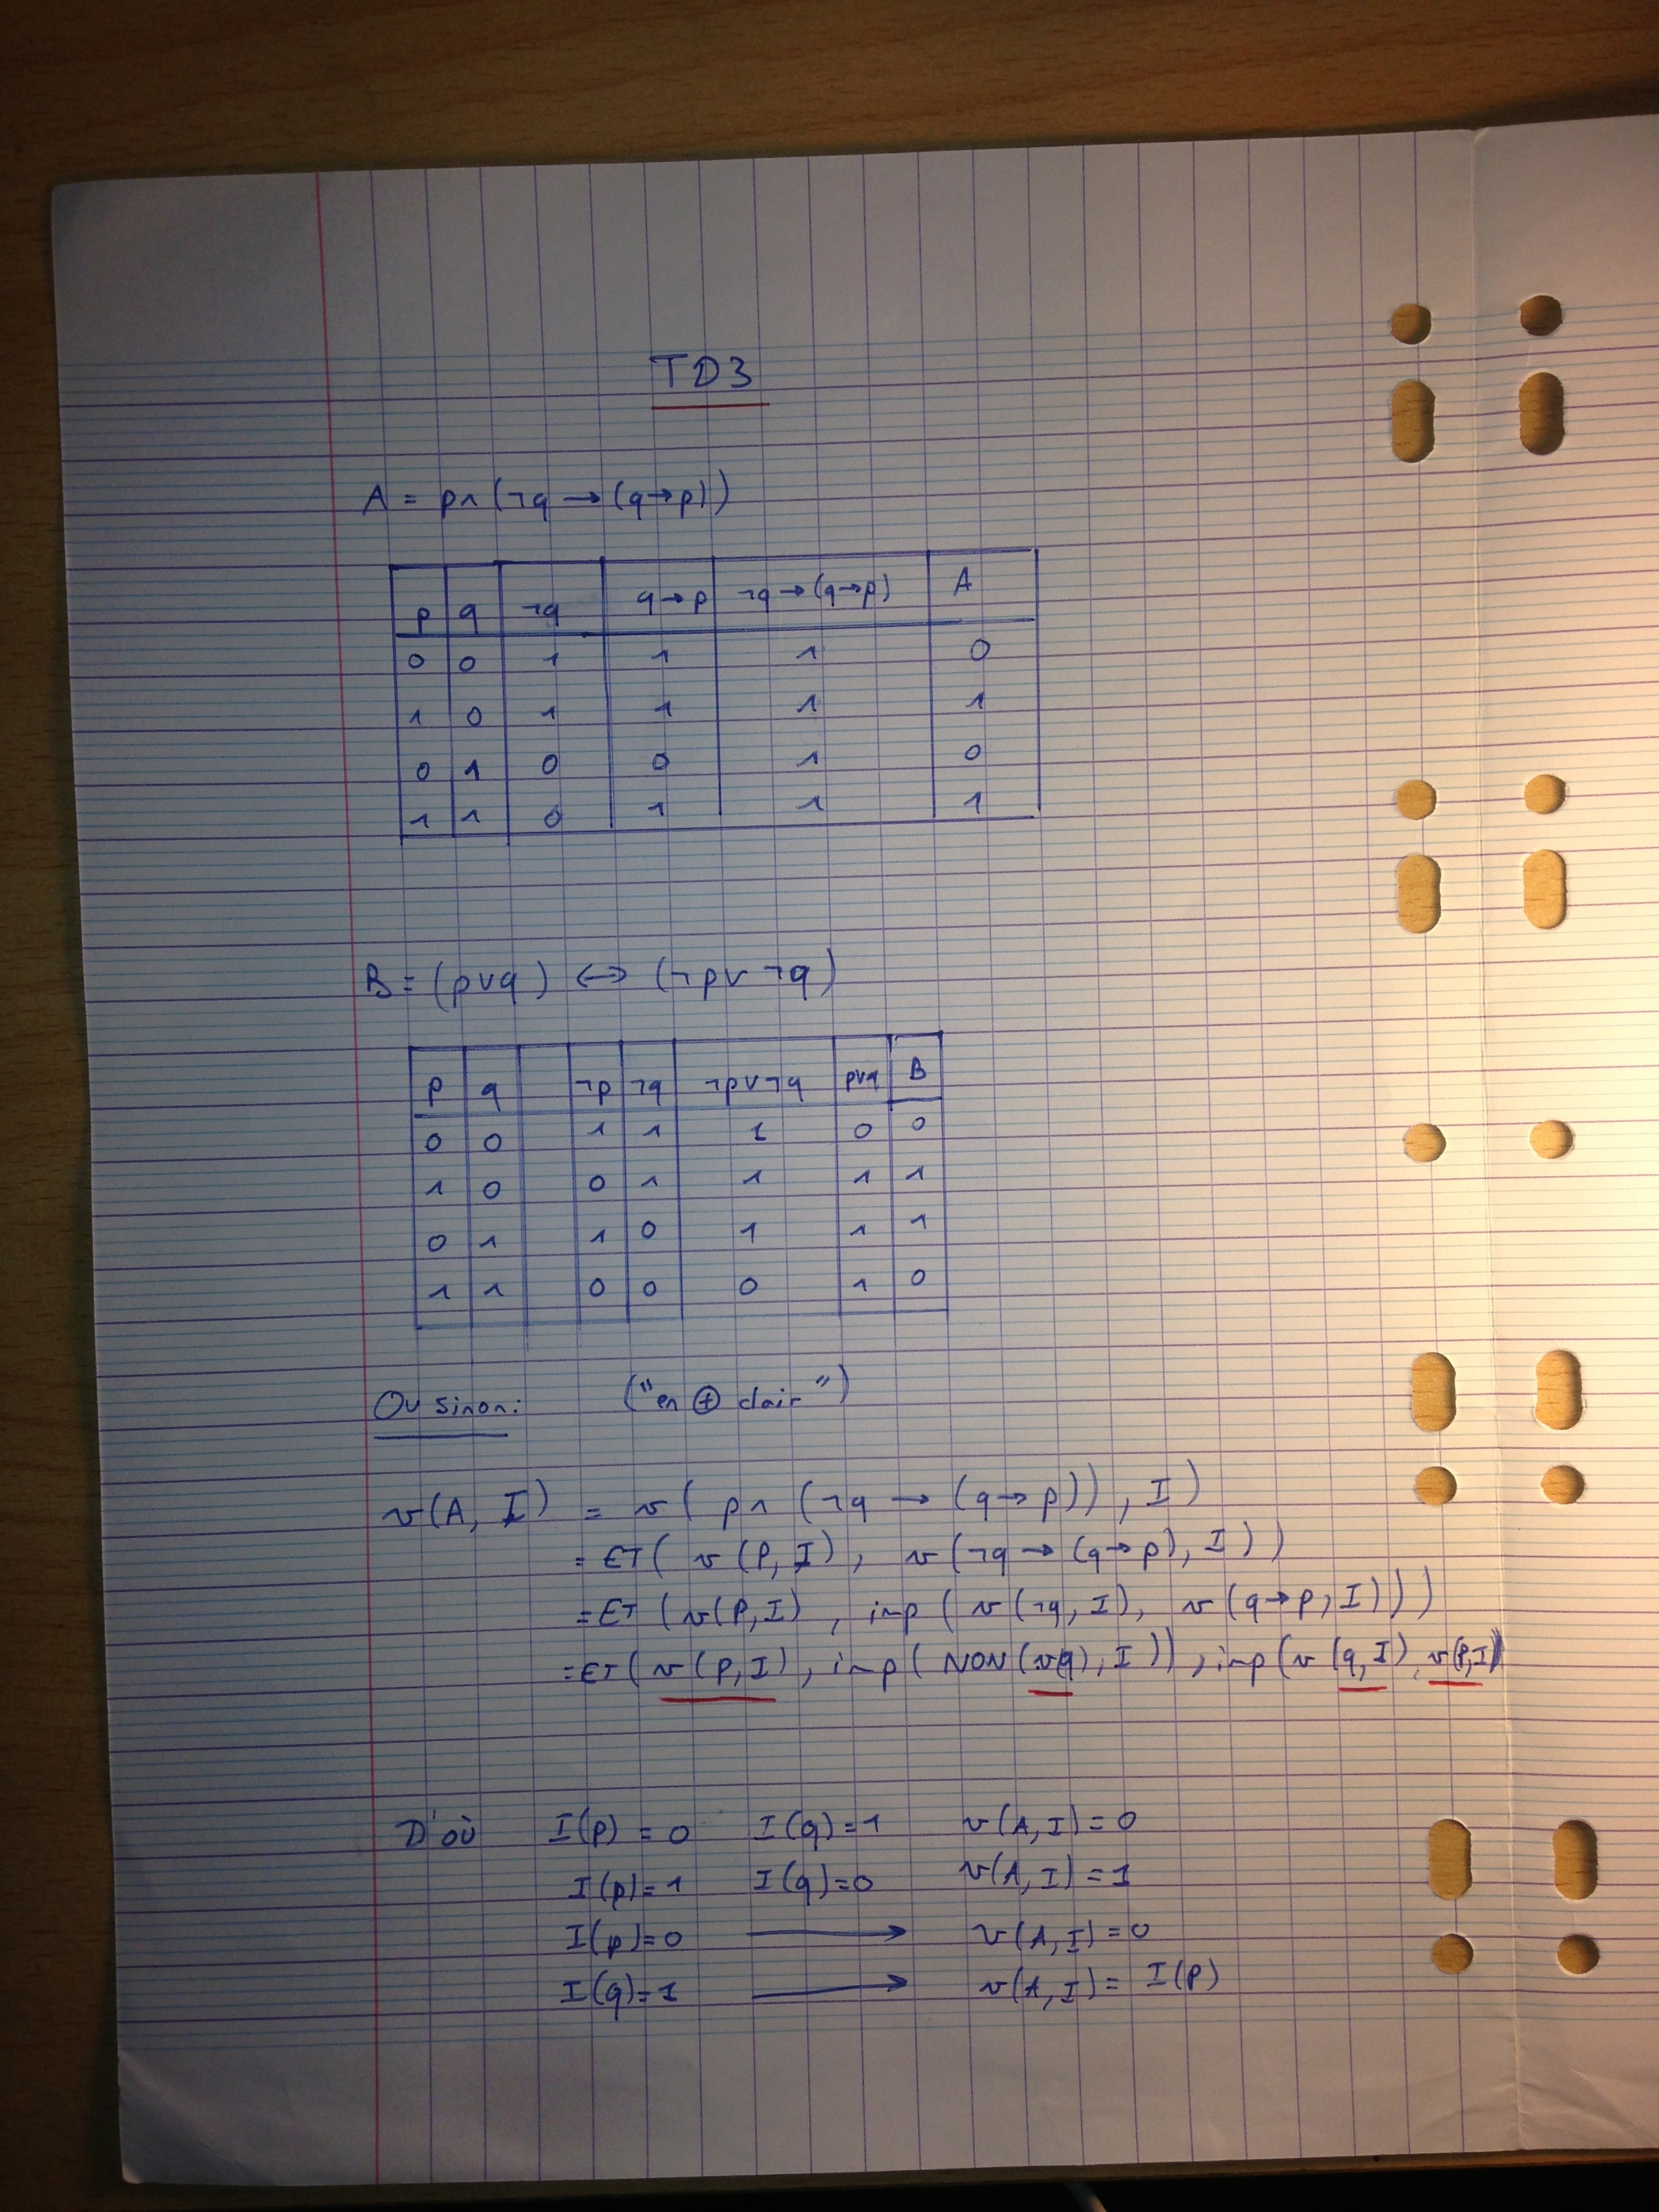 TD3
A = p∧(¬q → (q→p))
p q ¬q q→p ¬q→(q→p) A
0 0 1 1 1 0
1 0 1 1 1 1
0 1 0 0 1 0
1 1 0 1 1 1
B = (p∨q) ↔ (¬p∨¬q)
p q ¬p ¬q ¬p∨¬q p∨q B
0 0 1 1 1 0 0
1 0 0 1 1 1 1
0 1 1 0 1 1 1
1 1 0 0 0 1 0
Ou sinon: ("en ⊕ clair")
v(A, I) = v( p∧ (¬q → (q→p)), I)
= ET( v(P, I), v(¬q → (q→p), I))
= ET( v(P, I), imp( v(¬q, I), v(q→p, I)))
= ET( v(P, I), imp( NON(v(q), I)), imp(v(q, I), v(P, I)
D'où I(p) = 0 I(q) = 1 v(A, I) = 0
I(p) = 1 I(q) = 0 v(A, I) = 1
I(p) = 0 → v(A, I) = 0
I(q) = 1 → v(A, I) = I(P)